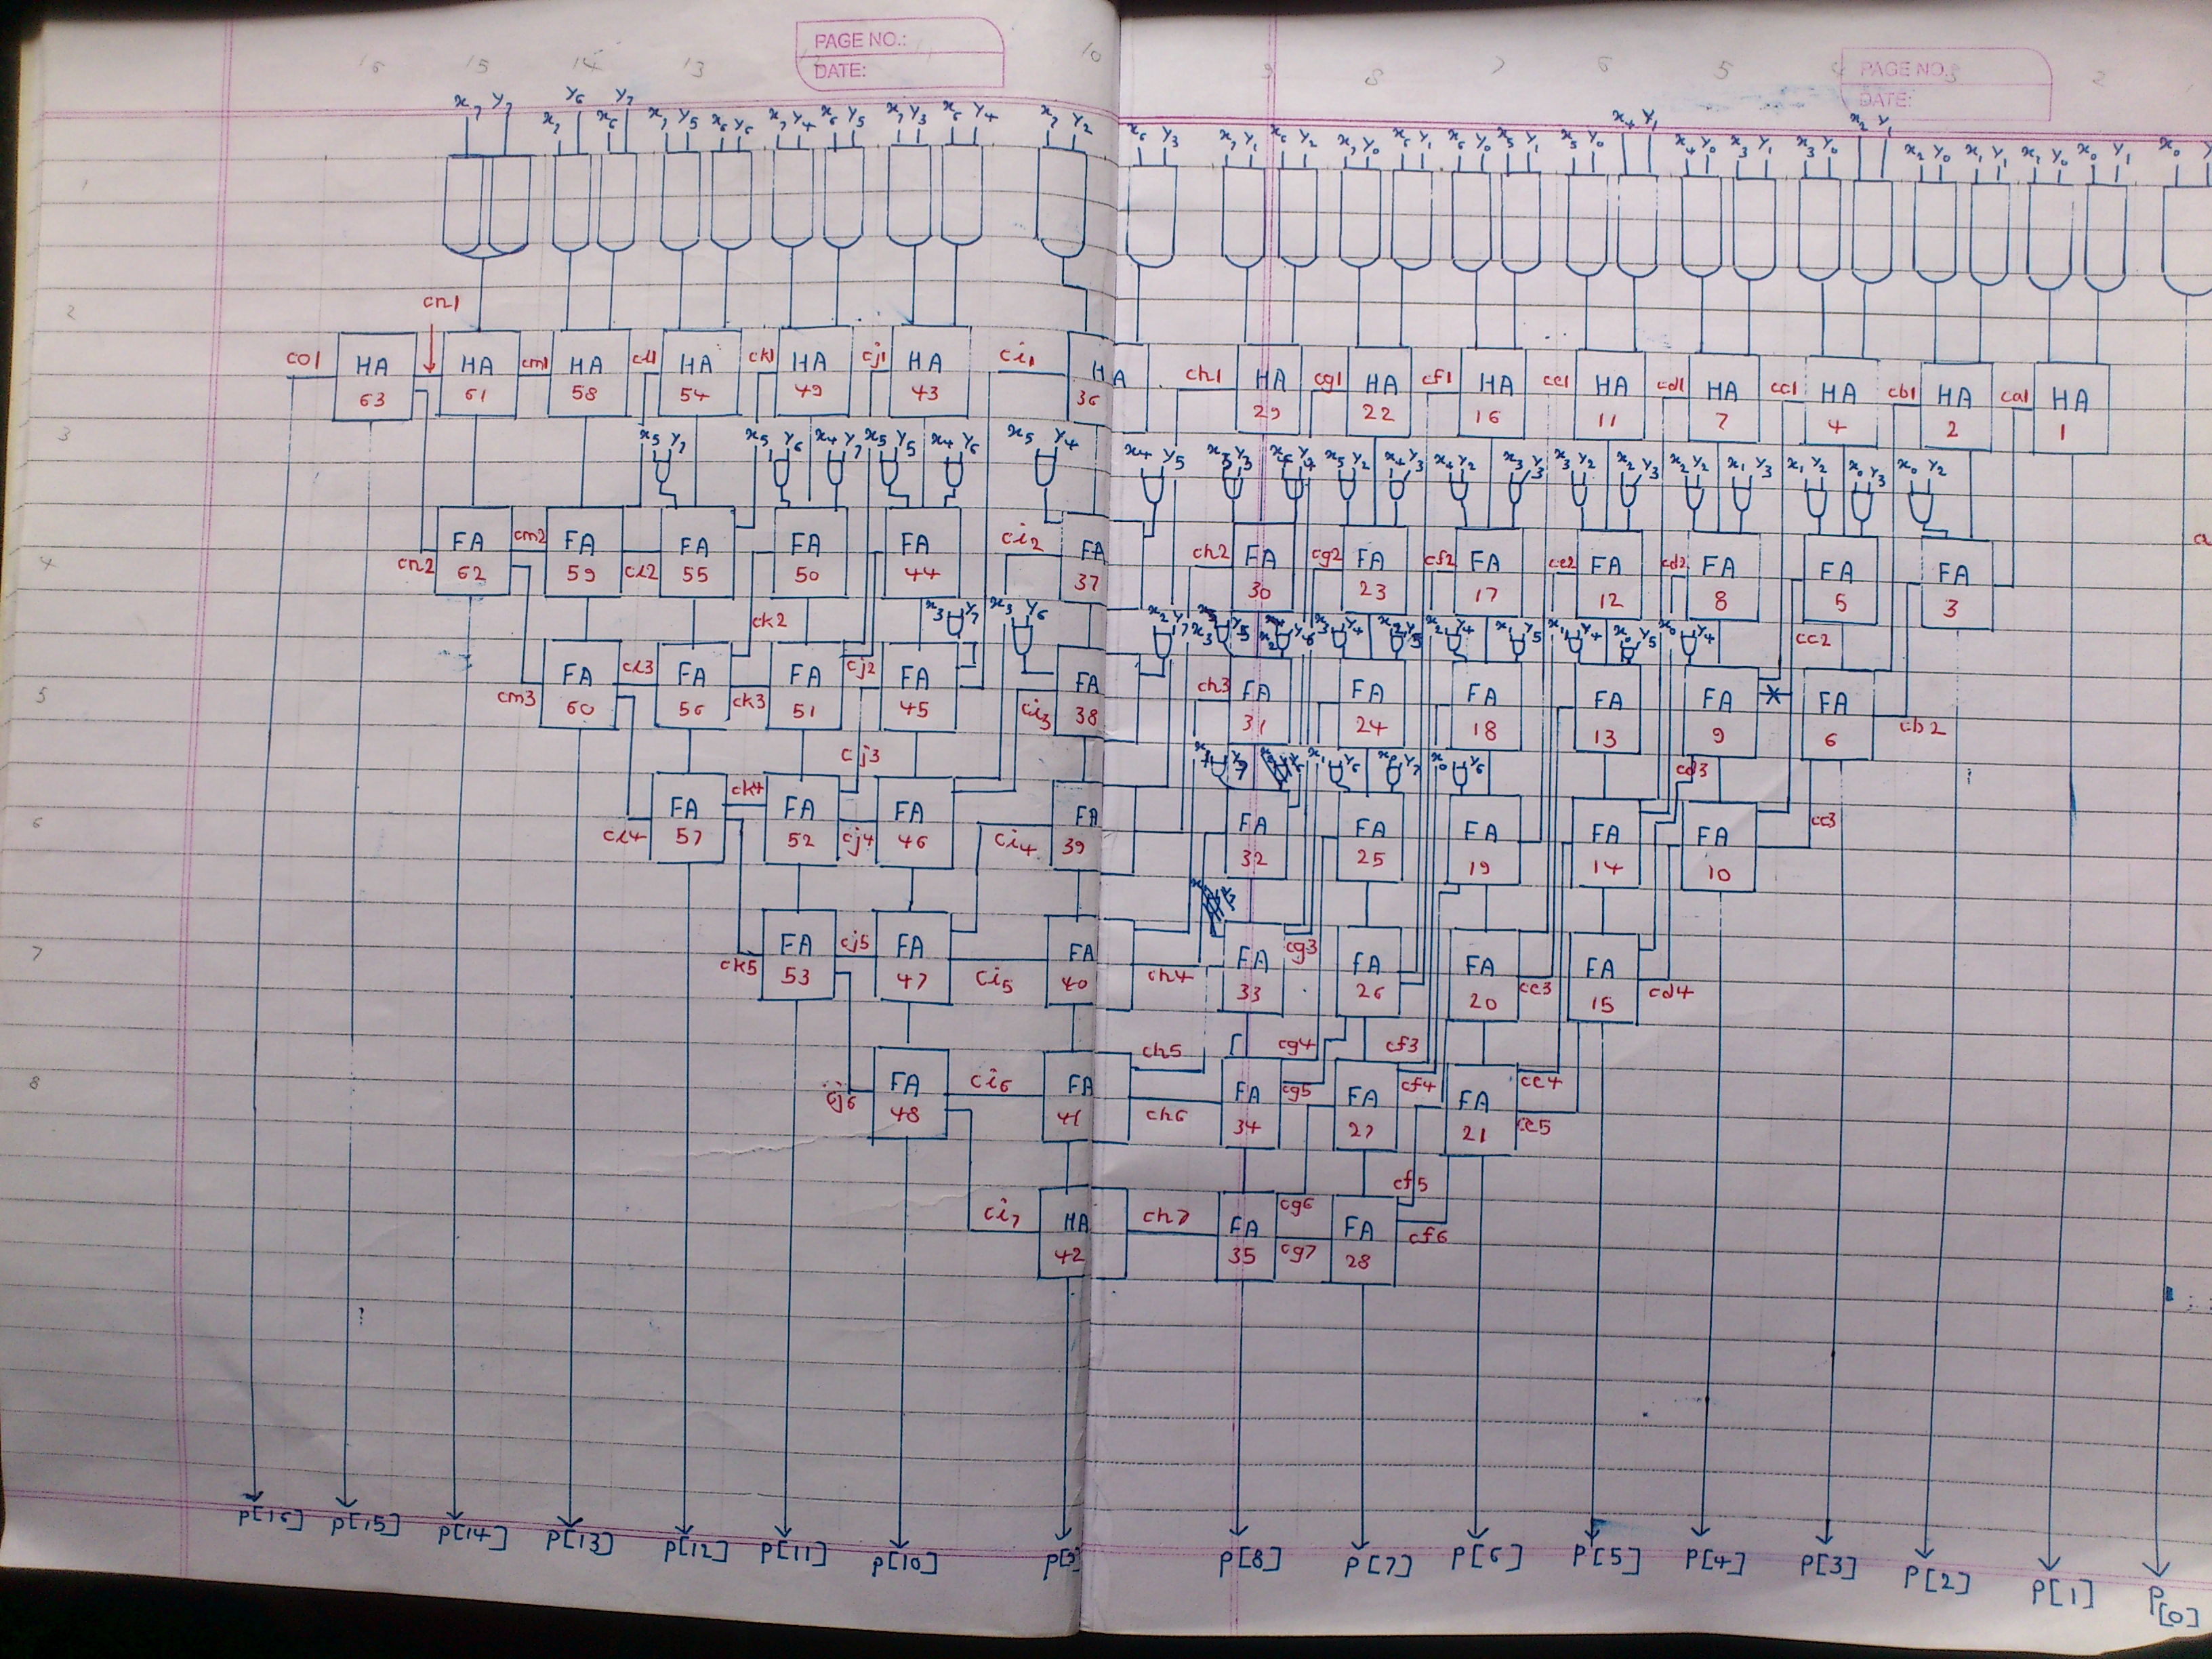 PAGE NO.:
DATE:
PAGE NO.
DATE:
16 15 14 13 10 9 8 7 6 5 4 3 2
x7 y7 x7 y6 x6 y7 x7 y5 x6 y6 x7 y4 x6 y5 x7 y3 x6 y4 x7 y2 x6 y3 x7 y1 x6 y2 x7 y0 x6 y1 x6 y0 x5 y1 x5 y0 x4 y1 x4 y0 x3 y1 x3 y0 x2 y1 x2 y0 x1 y1 x1 y0 x0 y1 x0
1
2
cn1
co1 HA 63 HA 61 cm1 HA 58 cl1 HA 54 ck1 HA 49 cj1 HA 43 ci1 HA 36 ch1 HA 29 cg1 HA 22 cf1 HA 16 ce1 HA 11 cd1 HA 7 cc1 HA 4 cb1 HA 2 ca1 HA 1
3
x5 y7 x5 y6 x4 y7 x5 y5 x4 y6 x5 y4 x4 y5 x5 y2 x4 y3 x4 y2 x3 y3 x3 y2 x2 y3 x2 y2 x1 y3 x1 y2 x0 y3 x0 y2
4
cn2 FA 62 cm2 FA 59 cl2 FA 55 FA 50 FA 44 ci2 FA 37 ch2 FA 30 cg2 FA 23 cf2 FA 17 ce2 FA 12 cd2 FA 8 FA 5 FA 3
ck2 x3 y7 x3 y6 x2 y7 x3 y5 x2 y6 x3 y4 x2 y5 x2 y4 x1 y5 x1 y4 x0 y5 x0 y4 cc2
5
cm3 FA 60 cl3 FA 56 ck3 FA 51 cj2 FA 45 ci3 FA 38 ch3 FA 31 FA 24 FA 18 FA 13 FA 9 FA 6 cb2
cj3 x1 y7 x1 y6 x0 y7 x0 y6 cd3
6
cl4 FA 57 ck4 FA 52 cj4 FA 46 ci4 FA 39 FA 32 FA 25 FA 19 FA 14 FA 10 cc3
7
ck5 FA 53 cj5 FA 47 ci5 FA 40 ch4 FA 33 cg3 FA 26 FA 20 ce3 FA 15 cd4
ch5 cg4 cf3
8
cj6 FA 48 ci6 FA 41 ch6 FA 34 cg5 FA 27 cf4 FA 21 ce4 ce5
cf5
ci7 HA 42 ch7 FA 35 cg6 cg7 FA 28 cf6
P[16] P[15] P[14] P[13] P[12] P[11] P[10] P[9] P[8] P[7] P[6] P[5] P[4] P[3] P[2] P[1] P[0]